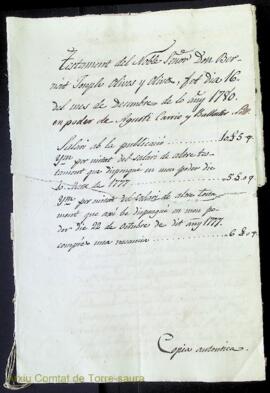 Testament del Noble Señor Don Ber-
nat Joseph Olives y Olives, fet dia 16
del mes de Decembre de lo añy 1780.
en poder de Agusti Carrio y Ballester Not.
Salari ab la publicació
Ytm per mitat del salari de altre tes-
tament que disposgue en mon poder die
de 1777.
Ytm per mitat del salari de altre testa-
ment que axi be disposgue en meu po-
der die 22 de octubre de dit añy 1777.
compres una
Copia autentica.
Arxiu Comtat de Torre-saura